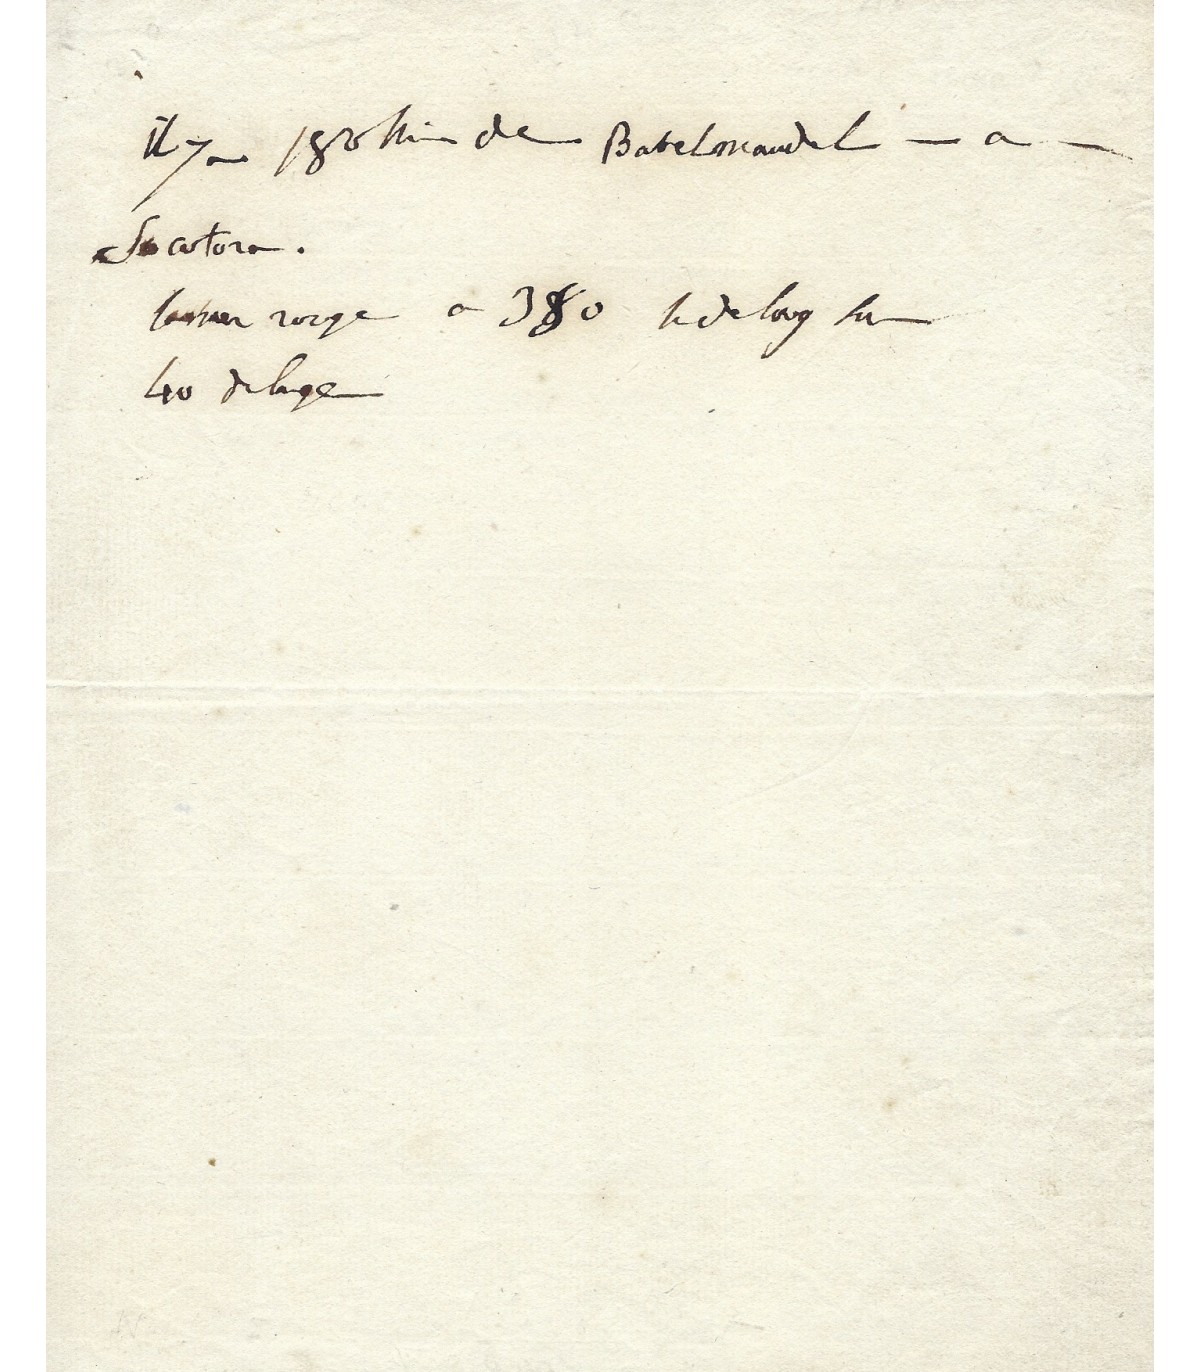 il y a 180 li de Babelmandel — a —
Socotora.
la mer rouge a 380 l de long sur
40 de large